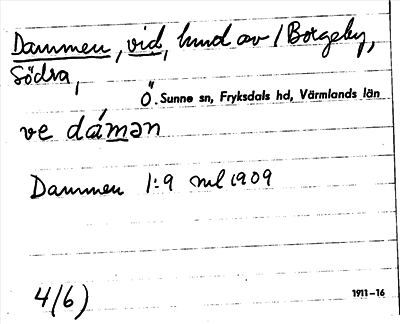 Dammen, vid, hmd av / Borgeby,
Södra,
Ö. Sunne sn, Fryksdals hd, Värmlands län
ve dámən
Dammen 1:9 1909
4(6)
1911–16